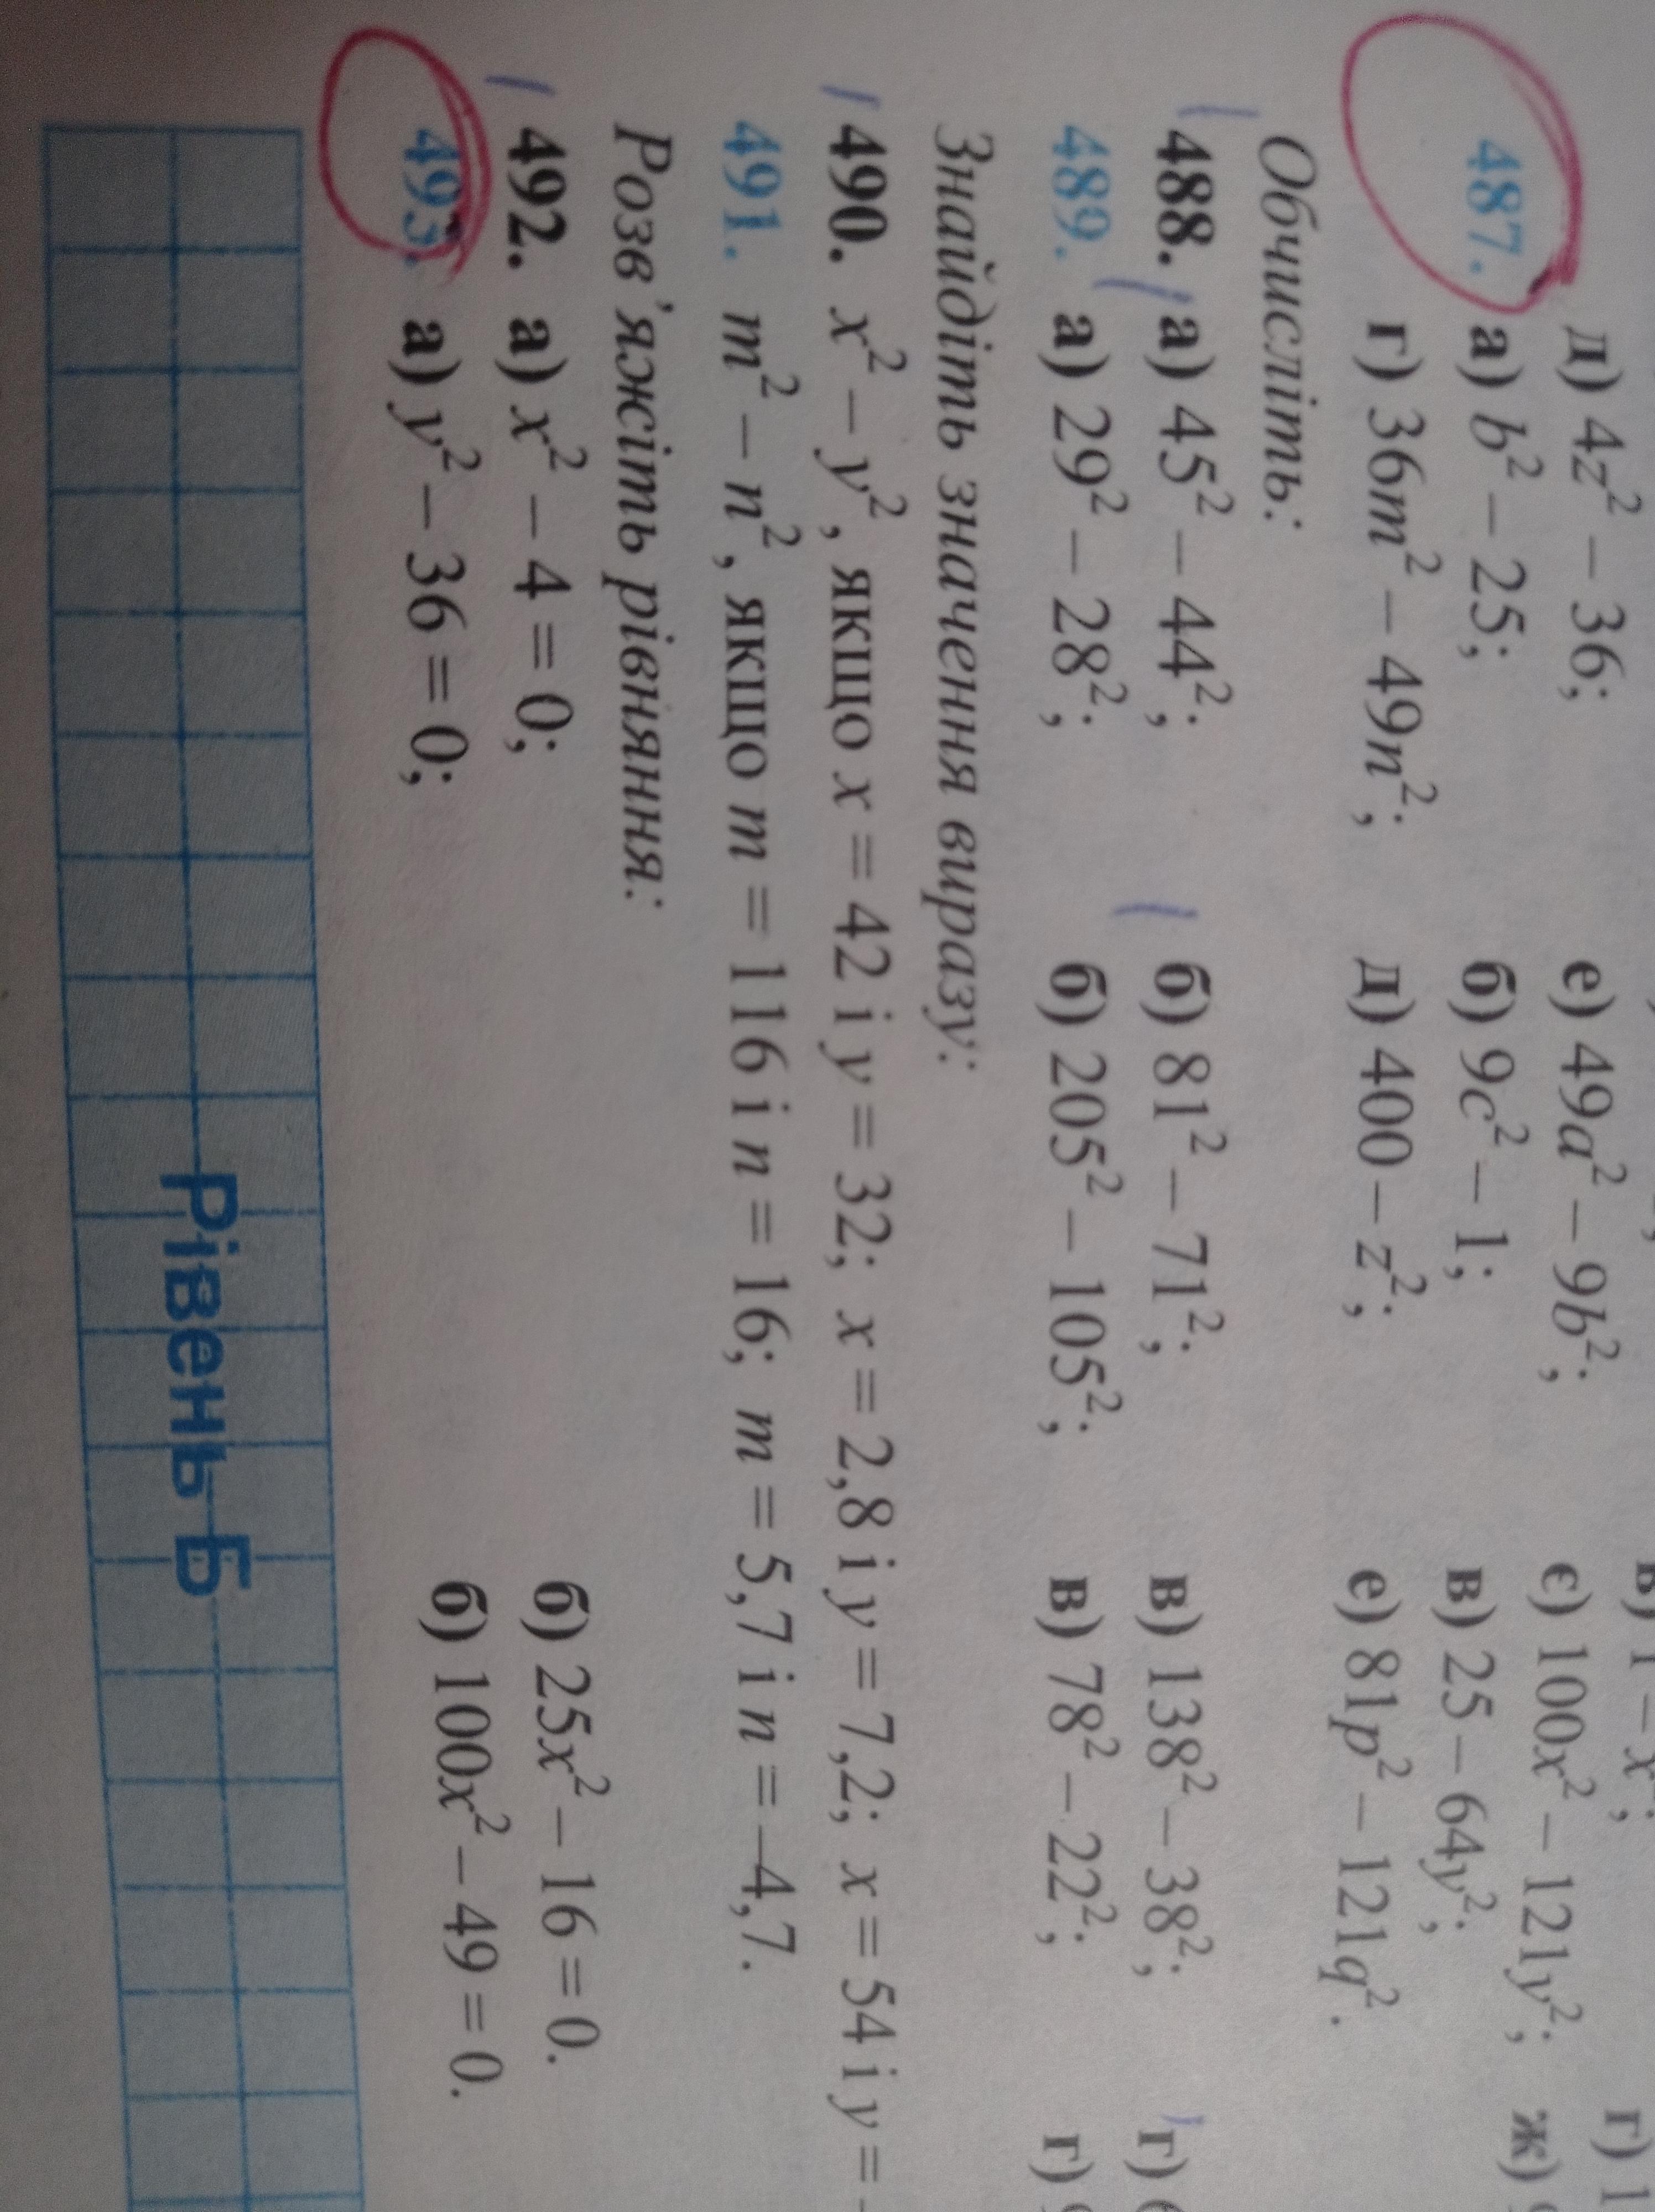 в) 1 – x²; г) 1
д) 4z² – 36; е) 49a² – 9b²; є) 100x² – 121y²; ж)
487. а) b² – 25; б) 9c² – 1; в) 25 – 64y²;
г) 36m² – 49n²; д) 400 – z²; е) 81p² – 121q².
Обчисліть:
488. а) 45² – 44²; б) 81² – 71²; в) 138² – 38²; г)
489. а) 29² – 28²; б) 205² – 105²; в) 78² – 22²; г)
Знайдіть значення виразу:
490. x² – y², якщо x = 42 і y = 32; x = 2,8 і y = 7,2; x = 54 і y =
491. m² – n², якщо m = 116 і n = 16; m = 5,7 і n = –4,7.
Розв’яжіть рівняння:
492. а) x² – 4 = 0; б) 25x² – 16 = 0.
493. а) y² – 36 = 0; б) 100x² – 49 = 0.
Рівень Б